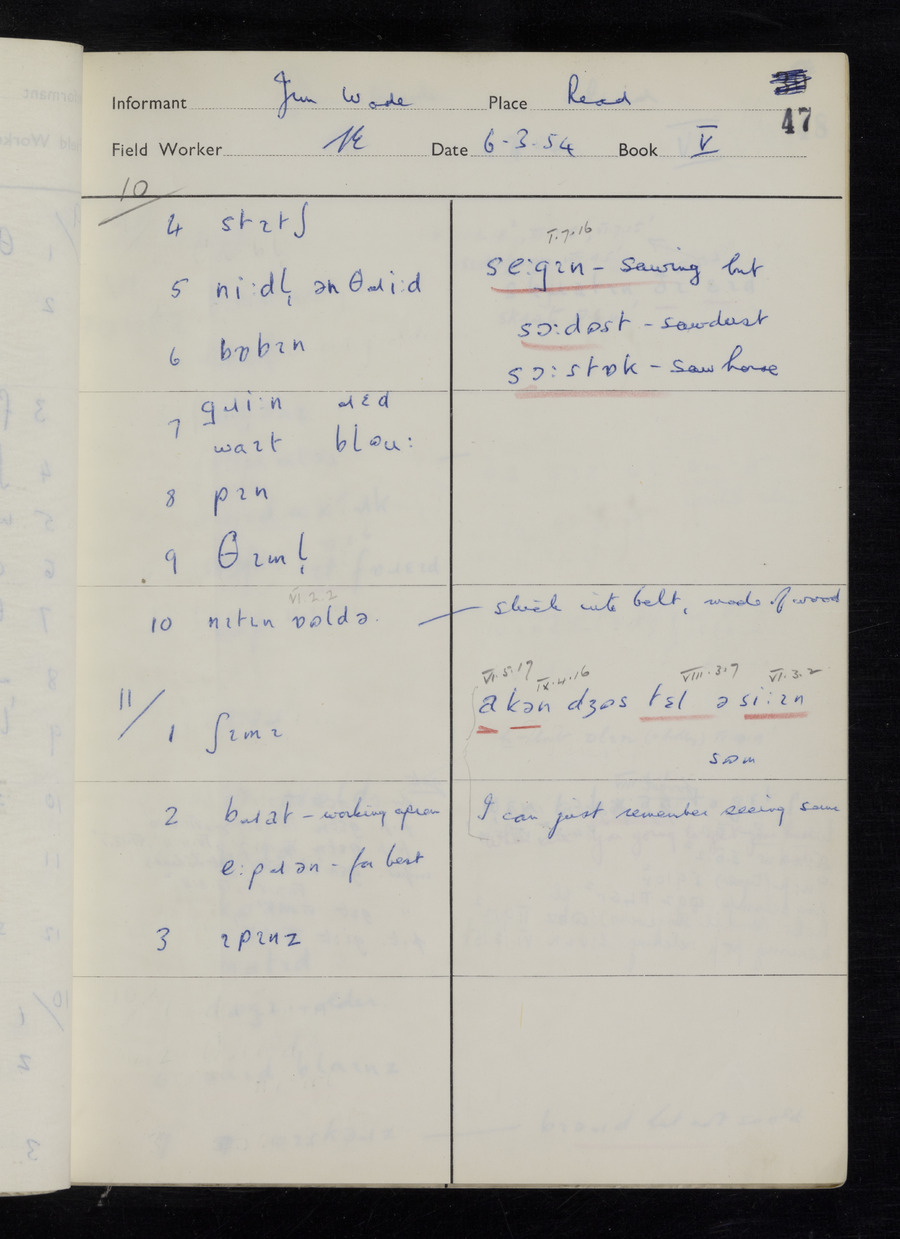 Informant Jim Wade Place Read
47
Field Worker Date 6-3-54 Book V
10
4 stɪtʃ
5 ni:dl̩ ənθɹi:d
6 bɒbɪn
7 gɹi:n ɹɛd
waɪt bləu:
8 pɪn
9 θɪml̩
VI.2.2
10 nɪtɪn
11/
1 ʃɪmɪ
2 bɹat – working apron
e:pɹən – for best
3 ɪpɪnz
V.7.16
se:gɪn – sawing but
sɔ:dəst – sawdust
sɔ:stɒk – saw horse
stuck into belt, made of wood
VI.5.17 IX.4.16 VIII.3.7 VI.3.2
a kən dʒəs tɛl ə si:ɪn
səm
I can just remember seeing some